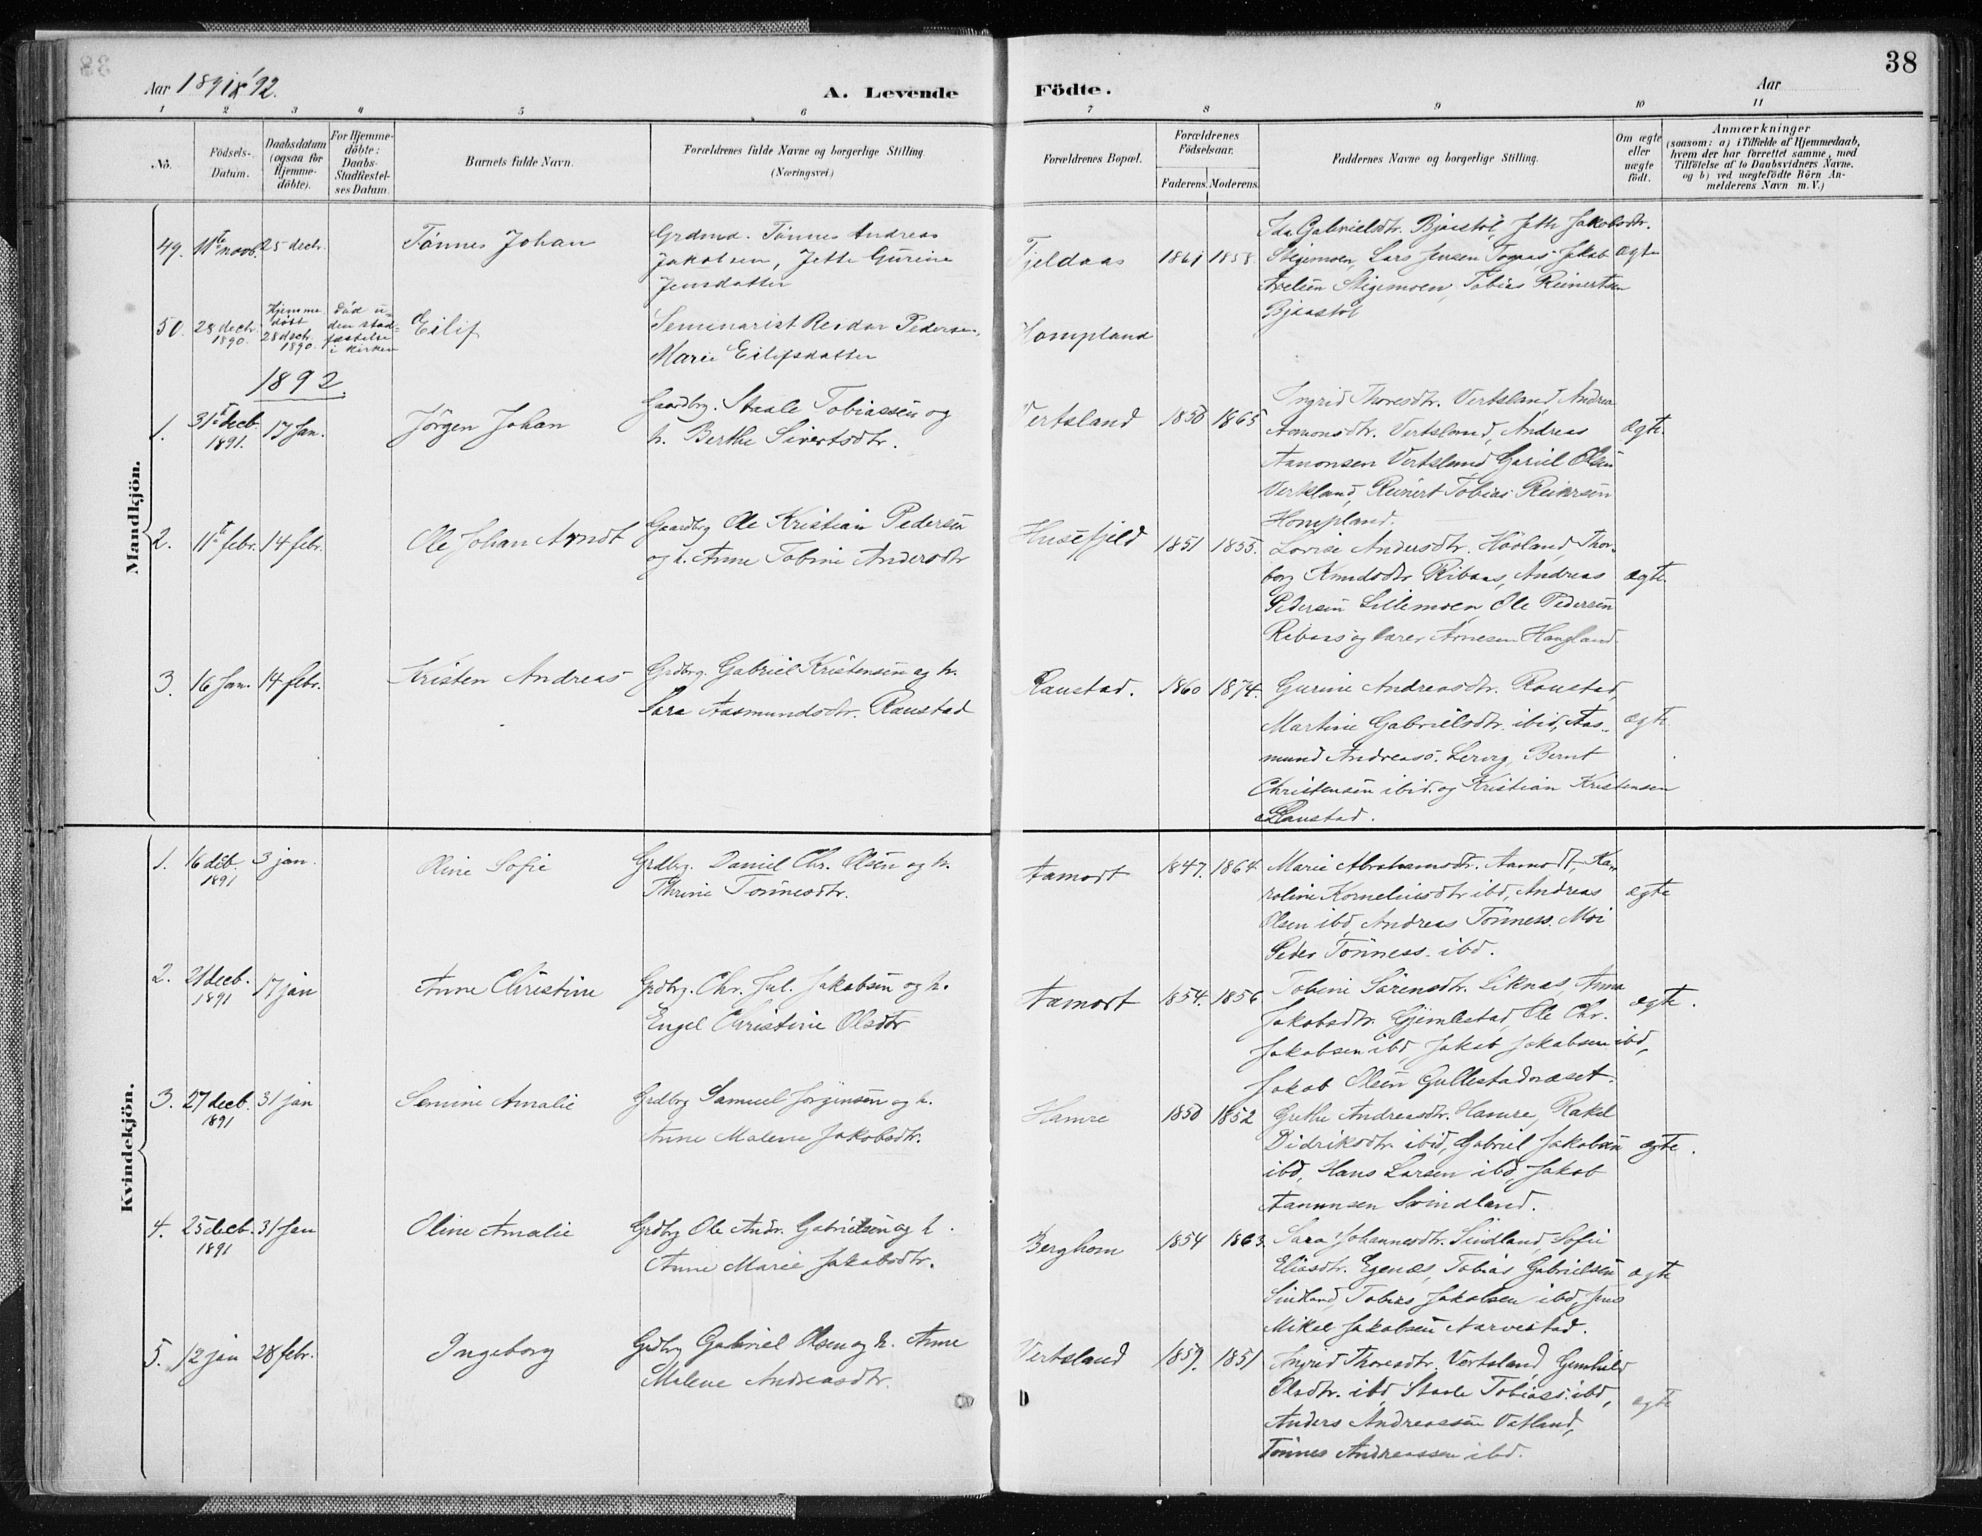 38
Aar 1891 & '92.
A. Levende
Födte.
Aar
1 2 3 4 5 6 7 8 9 10 11
No.
Födsels-Datum.
Daabsdatum (ogsaa for Hjemmedöbte).
For Hjemmedöbte: Daabs-Stadfæstelses Datum.
Barnets fulde Navn.
Forældrenes fulde Navne og borgerlige Stilling.
(Næringsvei.)
Forældrenes Bopæl.
Forældrenes Födselsaar.
Faderens.
Moderens.
Faddernes Navne og borgerlige Stilling.
Om ægte eller uægte födt.
Anmærkninger
(saasom: a) i Tilfælde af Hjemmedaab,
hvem der har forrettet samme, med
Tilföielse af to Daabsvidners Navne.
og b) ved uægtefödte Börn An-
melderens Navn m. V.)
Mandkjön.
49. 11te novb. 25 decb. Tönnes Johan
Grdmd. Tönnes Andreas
Jakobsen, Jette Gurine
Jensdatter
Fjeldaas 1861 1858.
Ida Gabrielsdtr. Bjaastöl, Jette Jakobsdtr.
Stigemoen, Lars Jensen Tomas, Jakob
Axelsen Stigemoen, Tobias Reinertsen
Bjaastöl
ægte
50. 28 decb. 1890. Hjemme döbt 28 decb. 1890. Död uden stadfæstelse i kirken
Eilif
Seminarist Reidar Pedersen,
Marie Eilifsdatter
Hompland
1892.
1. 31te decb. 1891. 17 Jan. Jörgen Johan
Gaardbg. Staale Tobiassen og
h. Berthe Sivertsdtr.
Vertsland 1850 1865
Ingrid Thoresdtr. Vertsland, Andrea
Aamonsdtr. Vertsland, Andreas
Aanonsen Vertsland, Gariel Olsen
Vertsland, Reinert Tobias Reinrsen
Hompland.
ægte.
2. 11te febr. 14 febr. Ole Johan Arndt
Gaardbg Ole Kristian Pedersen
og h. Anne Tobine Andersdtr
Husefjeld 1851 1855.
Lovise Andersdtr. Höoland, Thor-
borg Knudsdtr Ribaas, Andreas
Pedersen Lillemoen, Ole Pedersen
Ribaas og lærer Arnesen Haugland.
ægte.
3. 16 Jan. 14 febr. Kristen Andreas
Grdbrg. Gabriel Kristensen og h.
Sara Aasmundsdtr. Raustad
Raustad. 1860 1874.
Gurine Andreasdtr. Raustad,
Martine Gabrielsdtr. ibid, Aas-
mund Andreass. Lervig, Bernt
Christensen ibid. og Kristian Kristensen
Raustad.
ægte.
Kvindekjön.
1. 16 dcb. 1891 3 jan. Oline Sofie
Grdbg. Daniel Chr. Olsen og h.
Thrine Tönnesdtr.
Aamodt 1847. 1864.
Marie Abrahamsdtr. Aamodt, Ka-
roline Korneliusdtr ibd, Andreas
Olsen ibd, Andreas Tönness. Moi
Peder Tönness. ibd.
ægte
2. 21 decb. 1891 17 jan Anne Christine
Grdbg. Chr. Jul. Jakobsen og h.
Engel Christine Olsdtr
Aamodt 1854. 1856.
Tobine Sörensdtr. Liknas, Anna
Jakobsdtr. Gjemlestad, Ole Chr.
Jakobsen ibd, Jakob Jakobsen ibd,
Jakob Olsen Gullestadnæset.
ægte.
3. 27 decb. 1891 31 jan Semine Amalie
Grdbg Samuel Jörgensen og h.
Anne Malene Jakobsdtr.
Hamre 1850 1852
Grethe Andreasdtr. Hamre, Rakel
Didriksdtr ibid, Gabriel Jakobsen
ibd, Hans Larsen ibd, Jakob
Aanunsen Svindland.
ægte.
4. 25 decb. 1891 31 Jan Oline Amalie
Grdbg Ole Andr. Gabrielsen og h.
Anne Marie Jakobsdtr.
Berghom 1854 1863.
Sara Johannesdtr. Sindland, Sofie
Eliasdtr. Egenæs, Tobias Gabrielsen
Sindland, Tobias Jakobsen ibd, Jens
Mikal Jakobsen Narvestad.
ægte
5. 12 jan 28 febr. Ingeborg
Grdbg Gabriel Olsen og h. Anne
Malene Andreasdtr.
Vertsland 1859. 1851
Ingrid Thoresdtr. Vertsland, Gunhild
Olsdtr. ibd, Staale Tobiass. ibd,
Anders Andreassen Vatland,
Tönnes Andreassen ibd.
ægte